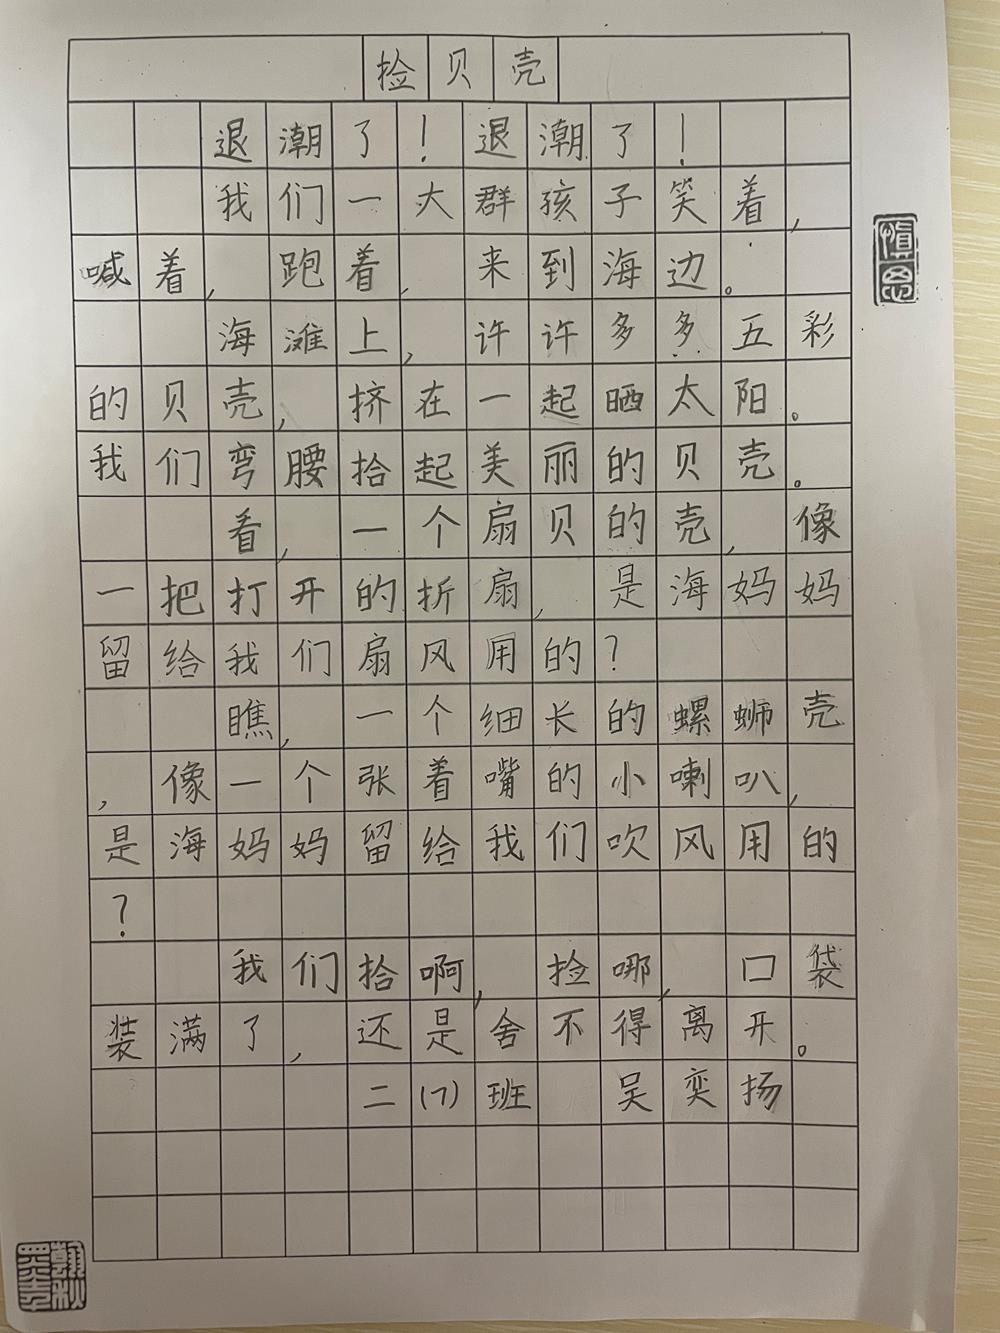 捡贝壳
退潮了！退潮了！
我们一大群孩子笑着，
喊着，跑着，来到海边。
海滩上，许许多多五彩
的贝壳，挤在一起晒太阳。
我们弯腰拾起美丽的贝壳。
看，一个扇贝的壳，像
一把打开的折扇，是海妈妈
留给我们扇风用的？
瞧，一个细长的螺蛳壳
，像一个张着嘴的小喇叭，
是海妈妈留给我们吹风用的
？
我们拾啊，捡哪，口袋
装满了，还是舍不得离开。
二(7)班 吴奕扬
慎思